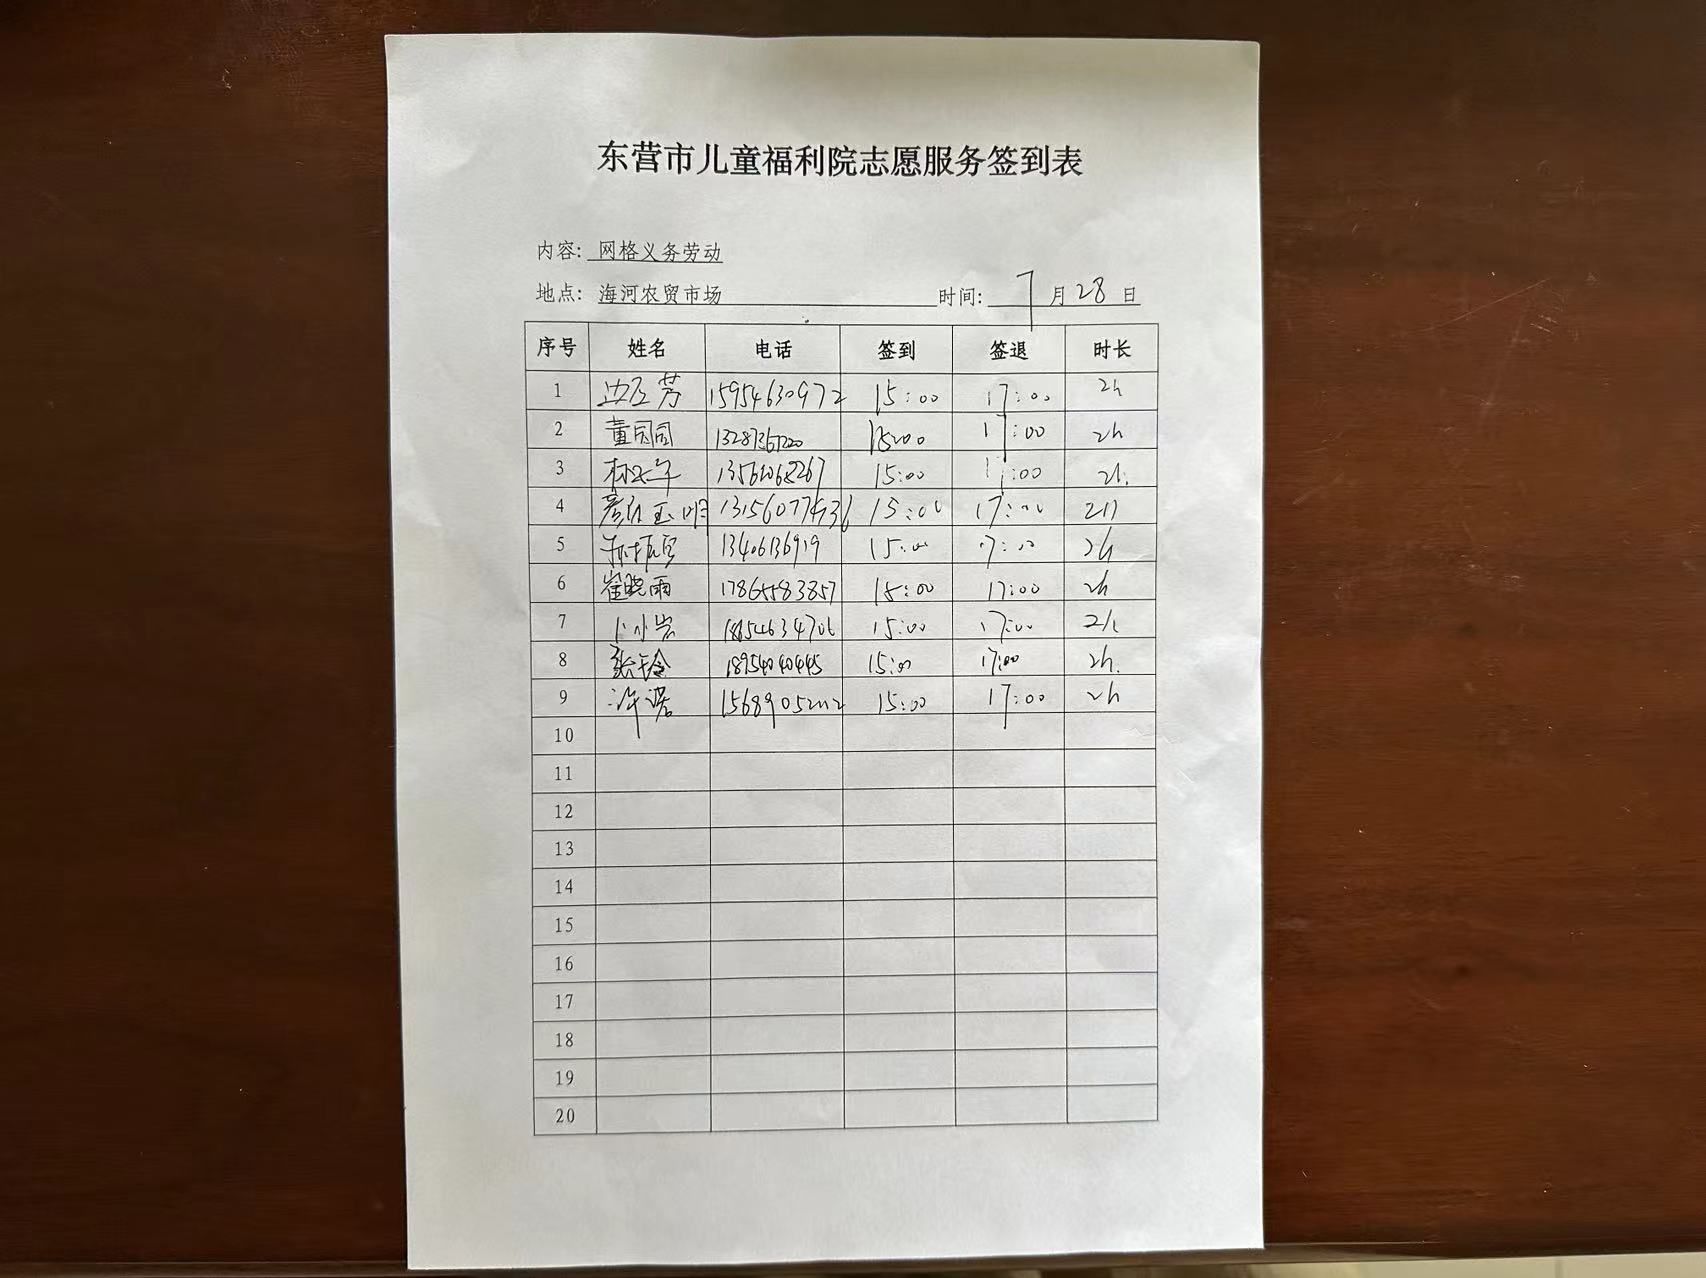 东营市儿童福利院志愿服务签到表
内容: 网格义务劳动
地点: 海河农贸市场 时间: 7月28日
序号 姓名 电话 签到 签退 时长
1 15954630972 15:00 17:00 2h
2 董园园 15:00 17:00 2h
3 15:00 17:00 2h.
4 15:00 17:00 2h
5 15:00 17:00 2h
6 崔晓雨 17865583857 15:00 17:00 2h
7 卜小岩 15:00 17:00 2h
8 18954040445 15:00 17:00 2h.
9 许诺 15689052112 15:00 17:00 2h
10
11
12
13
14
15
16
17
18
19
20